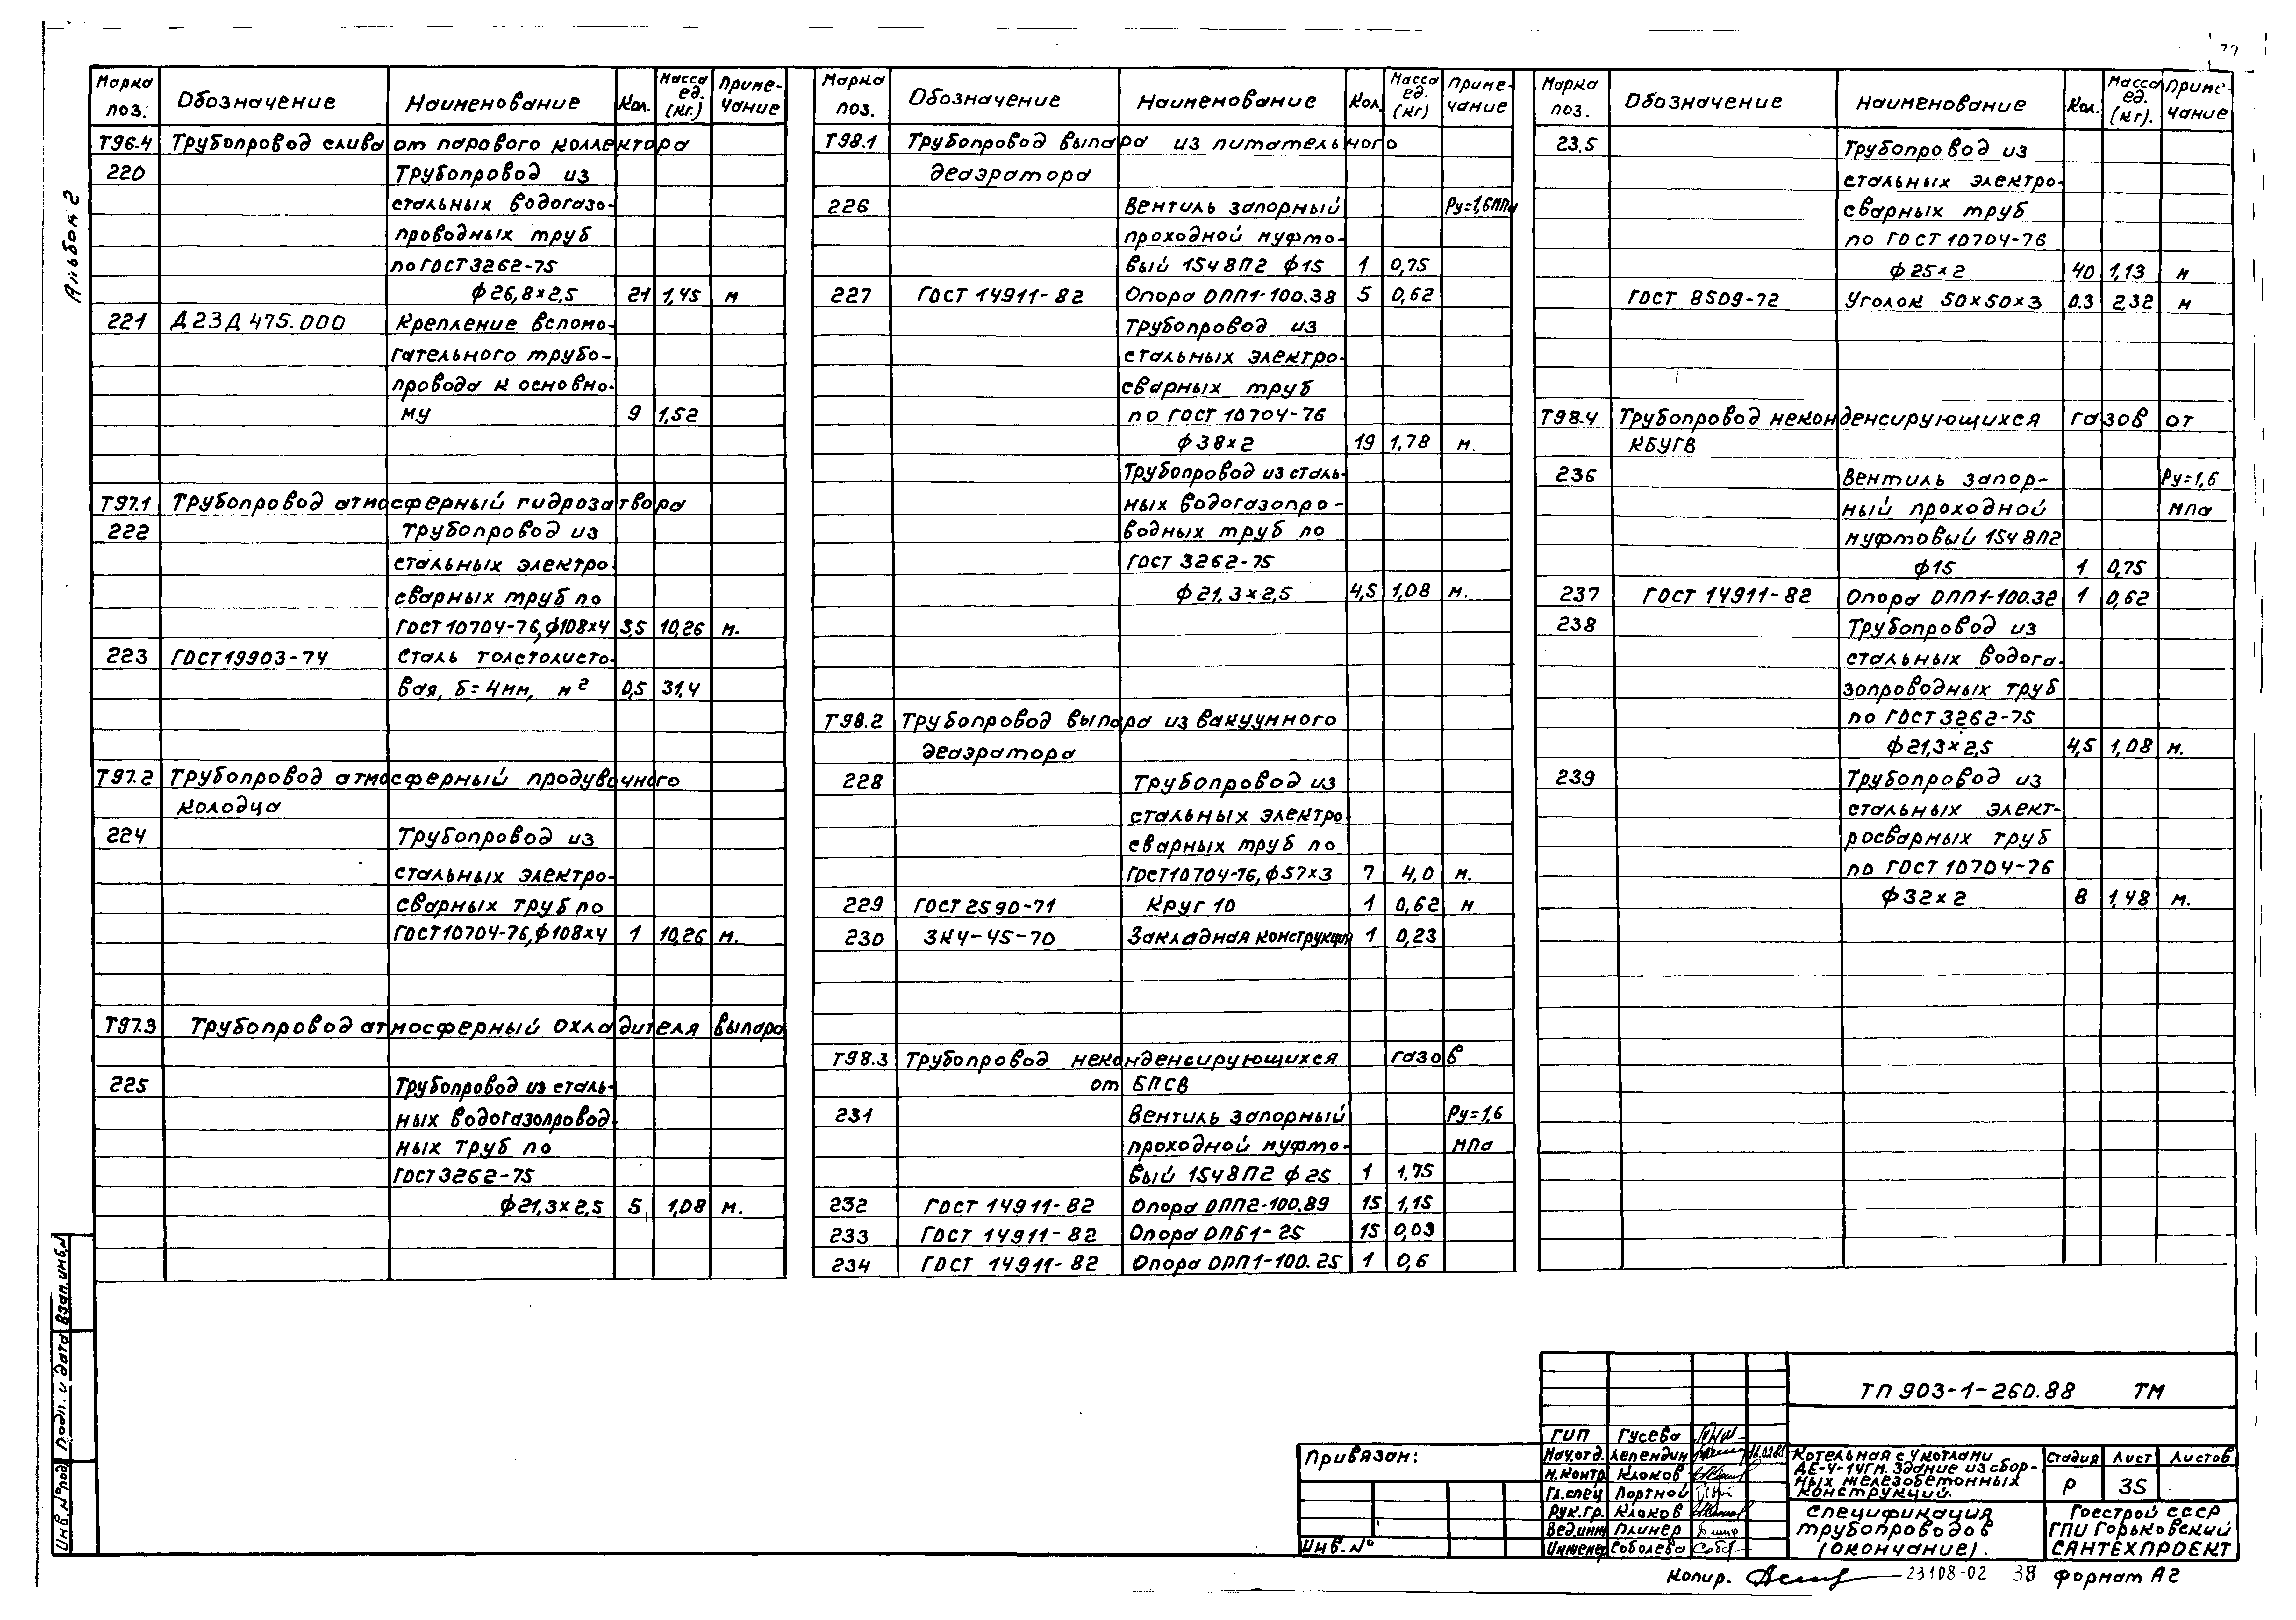 Альбом 2
Марка поз. Обозначение Наименование Кол. Масса ед. (кг.) Приме-чание
Т96.4 Трубопровод слива от парового коллектора
220 Трубопровод из
стальных водогазо-
проводных труб
по ГОСТ 3262-75
ф26,8×2,5 21 1,45 м
221 Д23Д475.000 Крепление вспомо-
гательного трубо-
провода к основно-
му 9 1,52
Т97.1 Трубопровод атмосферный гидрозатвора
222 Трубопровод из
стальных электро-
сварных труб по
ГОСТ 10704-76, ф108×4 3,5 10,26 м.
223 ГОСТ 19903-74 Сталь толстолисто-
вая, δ=4мм, м² 0,5 31,4
Т97.2 Трубопровод атмосферный продувочного
колодца
224 Трубопровод из
стальных электро-
сварных труб по
ГОСТ 10704-76, ф108×4 1 10,26 м.
Т97.3 Трубопровод атмосферный охладителя выпара
225 Трубопровод из сталь-
ных водогазопровод-
ных труб по
ГОСТ 3262-75
ф21,3×2,5 5 1,08 м.
Марка поз. Обозначение Наименование Кол. Масса ед. (кг) Приме-чание
Т98.1 Трубопровод выпара из питательного
деаэратора
226 Вентиль запорный Ру=1,6МПа
проходной муфто-
вый 15ч8П2 ф15 1 0,75
227 ГОСТ 14911-82 Опора ОПП1-100.38 5 0,62
Трубопровод из
стальных электро-
сварных труб
по ГОСТ 10704-76
ф38×2 19 1,78 м.
Трубопровод из сталь-
ных водогазопро-
водных труб по
ГОСТ 3262-75
ф21,3×2,5 4,5 1,08 м.
Т98.2 Трубопровод выпара из вакуумного
деаэратора
228 Трубопровод из
стальных электро-
сварных труб по
ГОСТ 10704-76, ф57×3 7 4,0 м.
229 ГОСТ 2590-71 Круг 10 1 0,62 м
230 ЗК4-45-70 Закладная конструкция 1 0,23
Т98.3 Трубопровод неконденсирующихся газов
от БПСВ
231 Вентиль запорный Ру=1,6
проходной муфто- МПа
вый 15ч8П2 ф25 1 1,75
232 ГОСТ 14911-82 Опора ОПП2-100.89 15 1,15
233 ГОСТ 14911-82 Опора ОПБ1-25 15 0,03
234 ГОСТ 14911-82 Опора ОПП1-100.25 1 0,6
Марка поз. Обозначение Наименование Кол. Масса ед. (кг). Приме-чание
23.5 Трубопровод из
стальных электро-
сварных труб
по ГОСТ 10704-76
ф25×2 40 1,13 м
ГОСТ 8509-72 Уголок 50×50×3 0.3 2,32 м
Т98.4 Трубопровод неконденсирующихся газов от
КБУГВ
236 Вентиль запор- Ру=1,6
ный проходной МПа
муфтовый 15ч8П2
ф15 1 0,75
237 ГОСТ 14911-82 Опора ОПП1-100.32 1 0,62
238 Трубопровод из
стальных водога-
зопроводных труб
по ГОСТ 3262-75
ф21,3×2,5 4,5 1,08 м.
239 Трубопровод из
стальных элект-
росварных труб
по ГОСТ 10704-76
ф32×2 8 1,48 м.
Инв.№подл. Подп. и дата Взап.инв.№
Привязан:
Инв.№
ТП 903-1-260.88 ТМ
ГИП Гусева
Нач.отд. Лепендин 18.02.88
Н.контр. Клоков
Гл.спец Портной
Рук.гр. Клоков
Вед.инж Плинер
Инженер Соболева
Котельная с 4 котлами
ДЕ-4-14ГМ. Здание из сбор-
ных железобетонных
конструкций.
Стадия Лист Листов
Р 35
Спецификация
трубопроводов
(окончание).
Госстрой СССР
ГПИ Горьковский
САНТЕХПРОЕКТ
Копир. 23108-02 38 формат А2